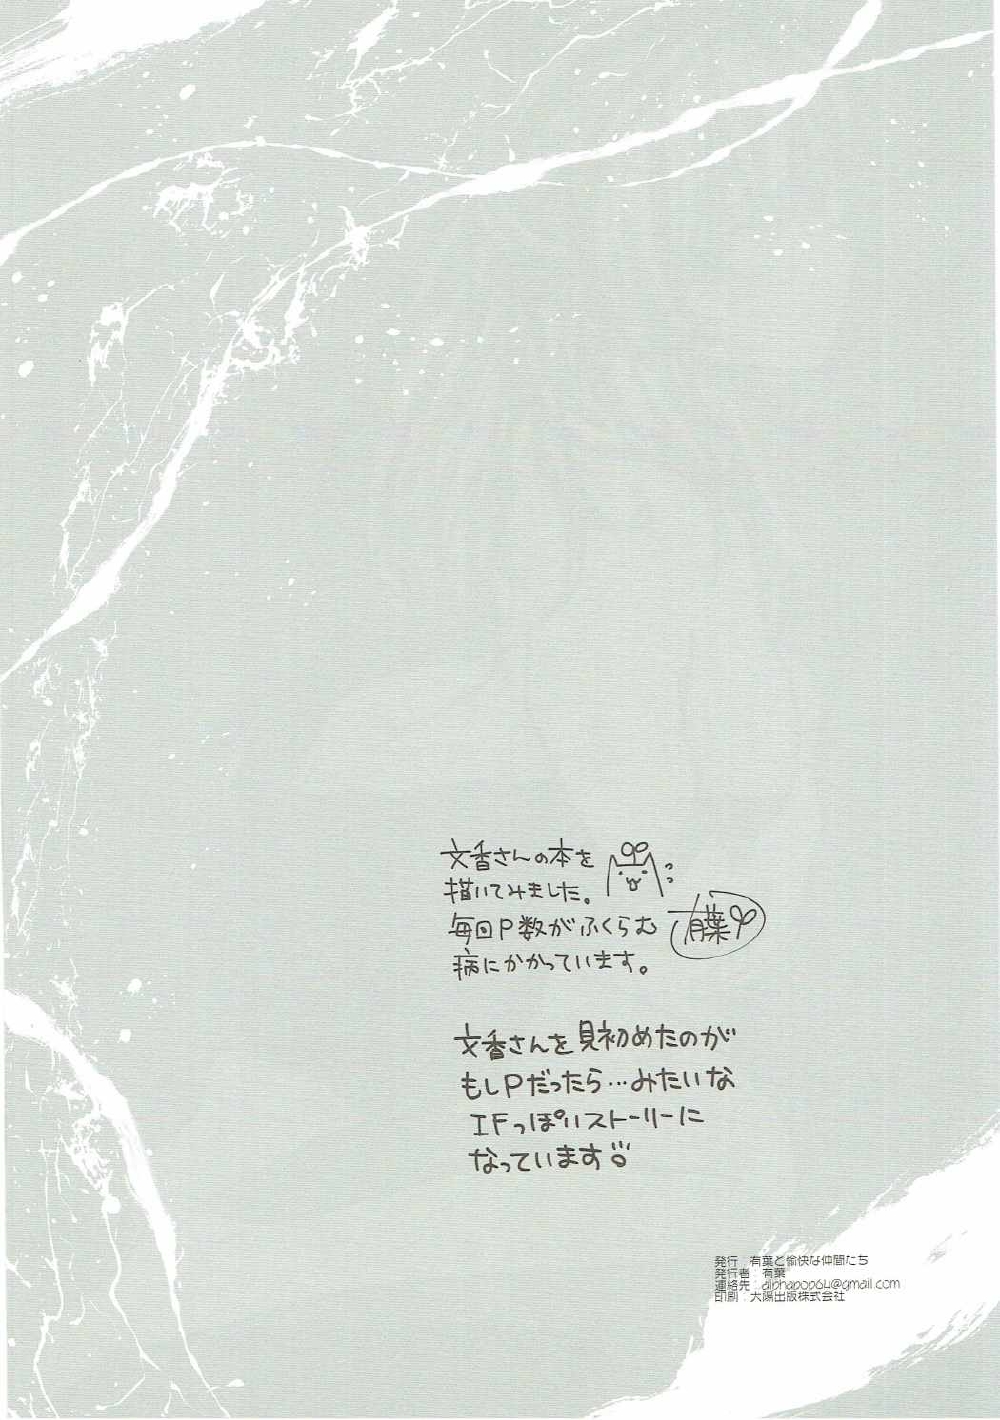 文香さんの本を
描いてみました。
毎回P数がふくらむ
病にかかっています。
有葉
文香さんを見初めたのが
もしPだったら…みたいな
IFっぽいストーリーに
なっています
発行 有葉と愉快な仲間たち
発行者：有葉
連絡先：alphapop64@gmail.com
印刷：大陽出版株式会社